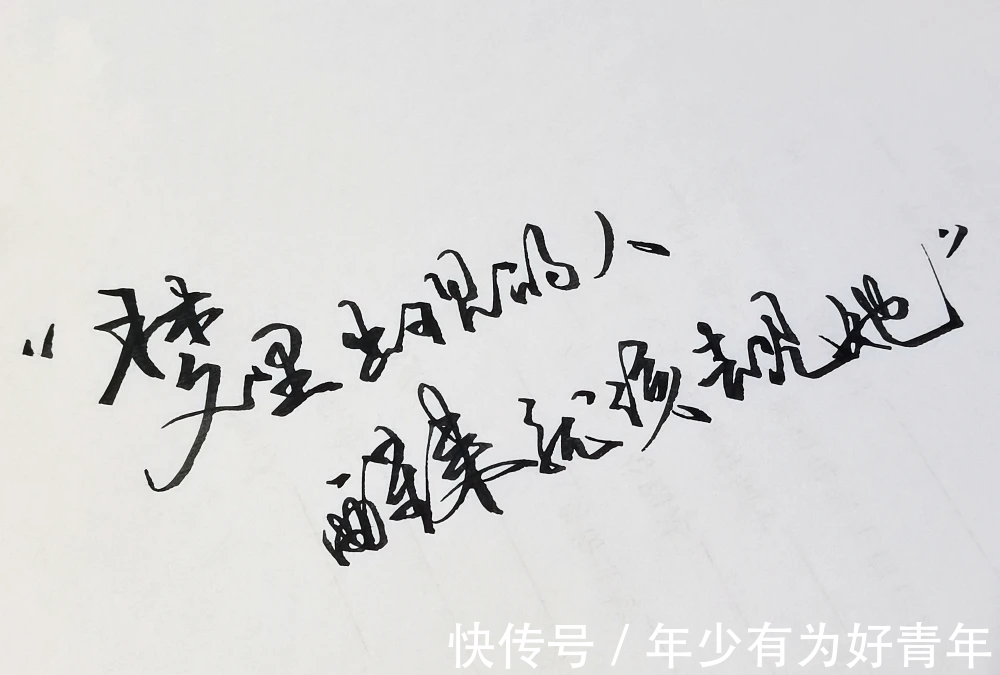 “梦里出现的人
醒来就该去见她”
快传号 / 年少有为好青年